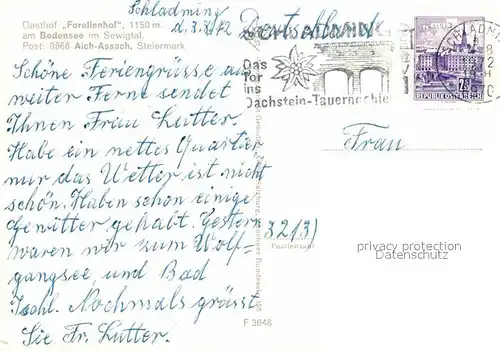 Gasthof „Forellenhof", 1150 m
am Bodensee im Sewigtal.
Post: 8966 Aich-Assach, Steiermark
Schladming
d. 3.8.72
Schöne Feriengrüsse aus
weiter Ferne sendet
Ihnen Frau Lutter.
Habe ein nettes Quartier
nur das Wetter ist nicht
schön. Haben schon einige
Gewitter gehabt. Gestern
waren wir zum Wolf-
gangsee, und Bad
Ischl. Nochmals grüsst
Sie Fr. Lutter.
Deutschland
SCHLADMING
Das
Tor
ins
Dachstein-Tauerngebiet
REPUBLIK ÖSTERREICH
Frau
3213)
Postleitzahl
privacy protection
Datenschutz
F 3648